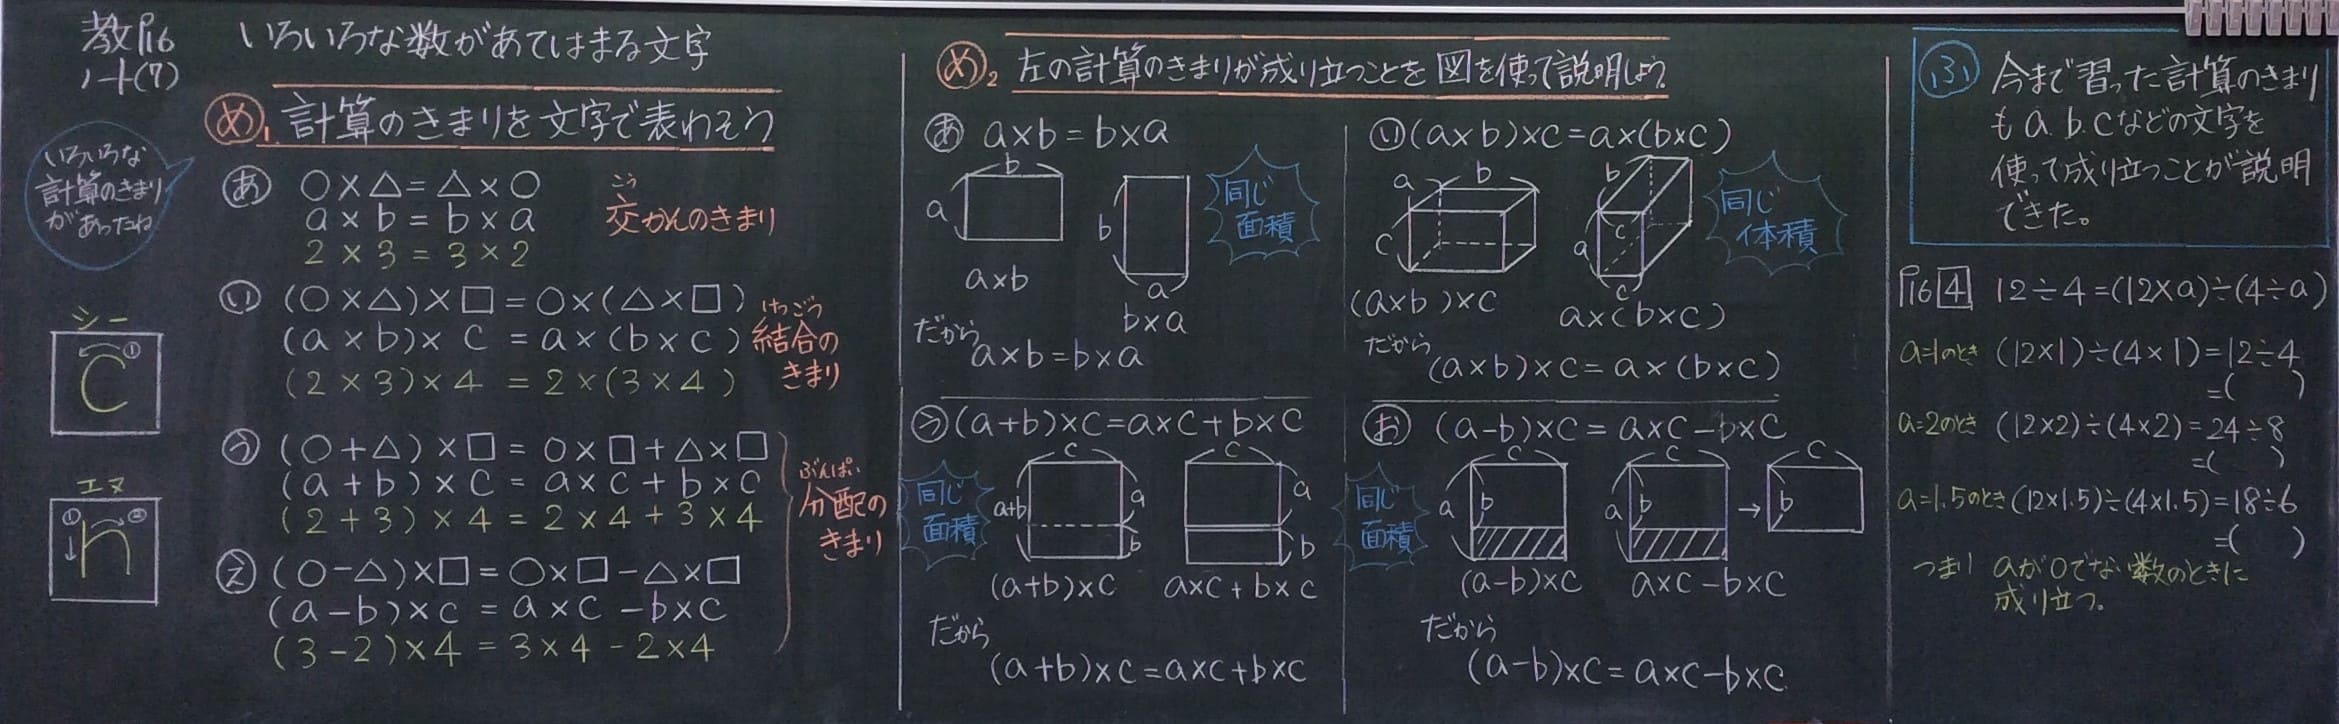 教P16
ノート(7)
いろいろな数があてはまる文字
め1 計算のきまりを文字で表わそう
いろいろな
計算のきまり
があったね
あ ○×△=△×○
a×b=b×a
2×3=3×2
こう
交かんのきまり
い (○×△)×□=○×(△×□)
(a×b)×c=a×(b×c)
(2×3)×4=2×(3×4)
けつごう
結合の
きまり
う (○+△)×□=○×□+△×□
(a+b)×c=a×c+b×c
(2+3)×4=2×4+3×4
え (○-△)×□=○×□-△×□
(a-b)×c=a×c-b×c
(3-2)×4=3×4-2×4
ぶんぱい
分配の
きまり
シー
c
①
エヌ
n
① ②
め2 左の計算のきまりが成り立つことを図を使って説明しよう。
あ a×b=b×a
b
a
a×b
b
a
b×a
同じ
面積
だから
a×b=b×a
い (a×b)×c=a×(b×c)
a
b
c
(a×b)×c
b
c
a
c
a×(b×c)
同じ
体積
だから
(a×b)×c=a×(b×c)
う (a+b)×c=a×c+b×c
同じ
面積
c
a+b
a
b
(a+b)×c
c
a
b
a×c+b×c
だから
(a+b)×c=a×c+b×c
お (a-b)×c=a×c-b×c
同じ
面積
c
a
b
(a-b)×c
c
a
b
→
c
b
a×c-b×c
だから
(a-b)×c=a×c-b×c
ふ 今まで習った計算のきまり
も a.b.cなどの文字を
使って成り立つことが説明
できた。
P16 4 12÷4=(12×a)÷(4÷a)
a=1のとき (12×1)÷(4×1)=12÷4
=( )
a=2のとき (12×2)÷(4×2)=24÷8
=( )
a=1.5のとき (12×1.5)÷(4×1.5)=18÷6
=( )
つまり aが0でない数のときに
成り立つ。